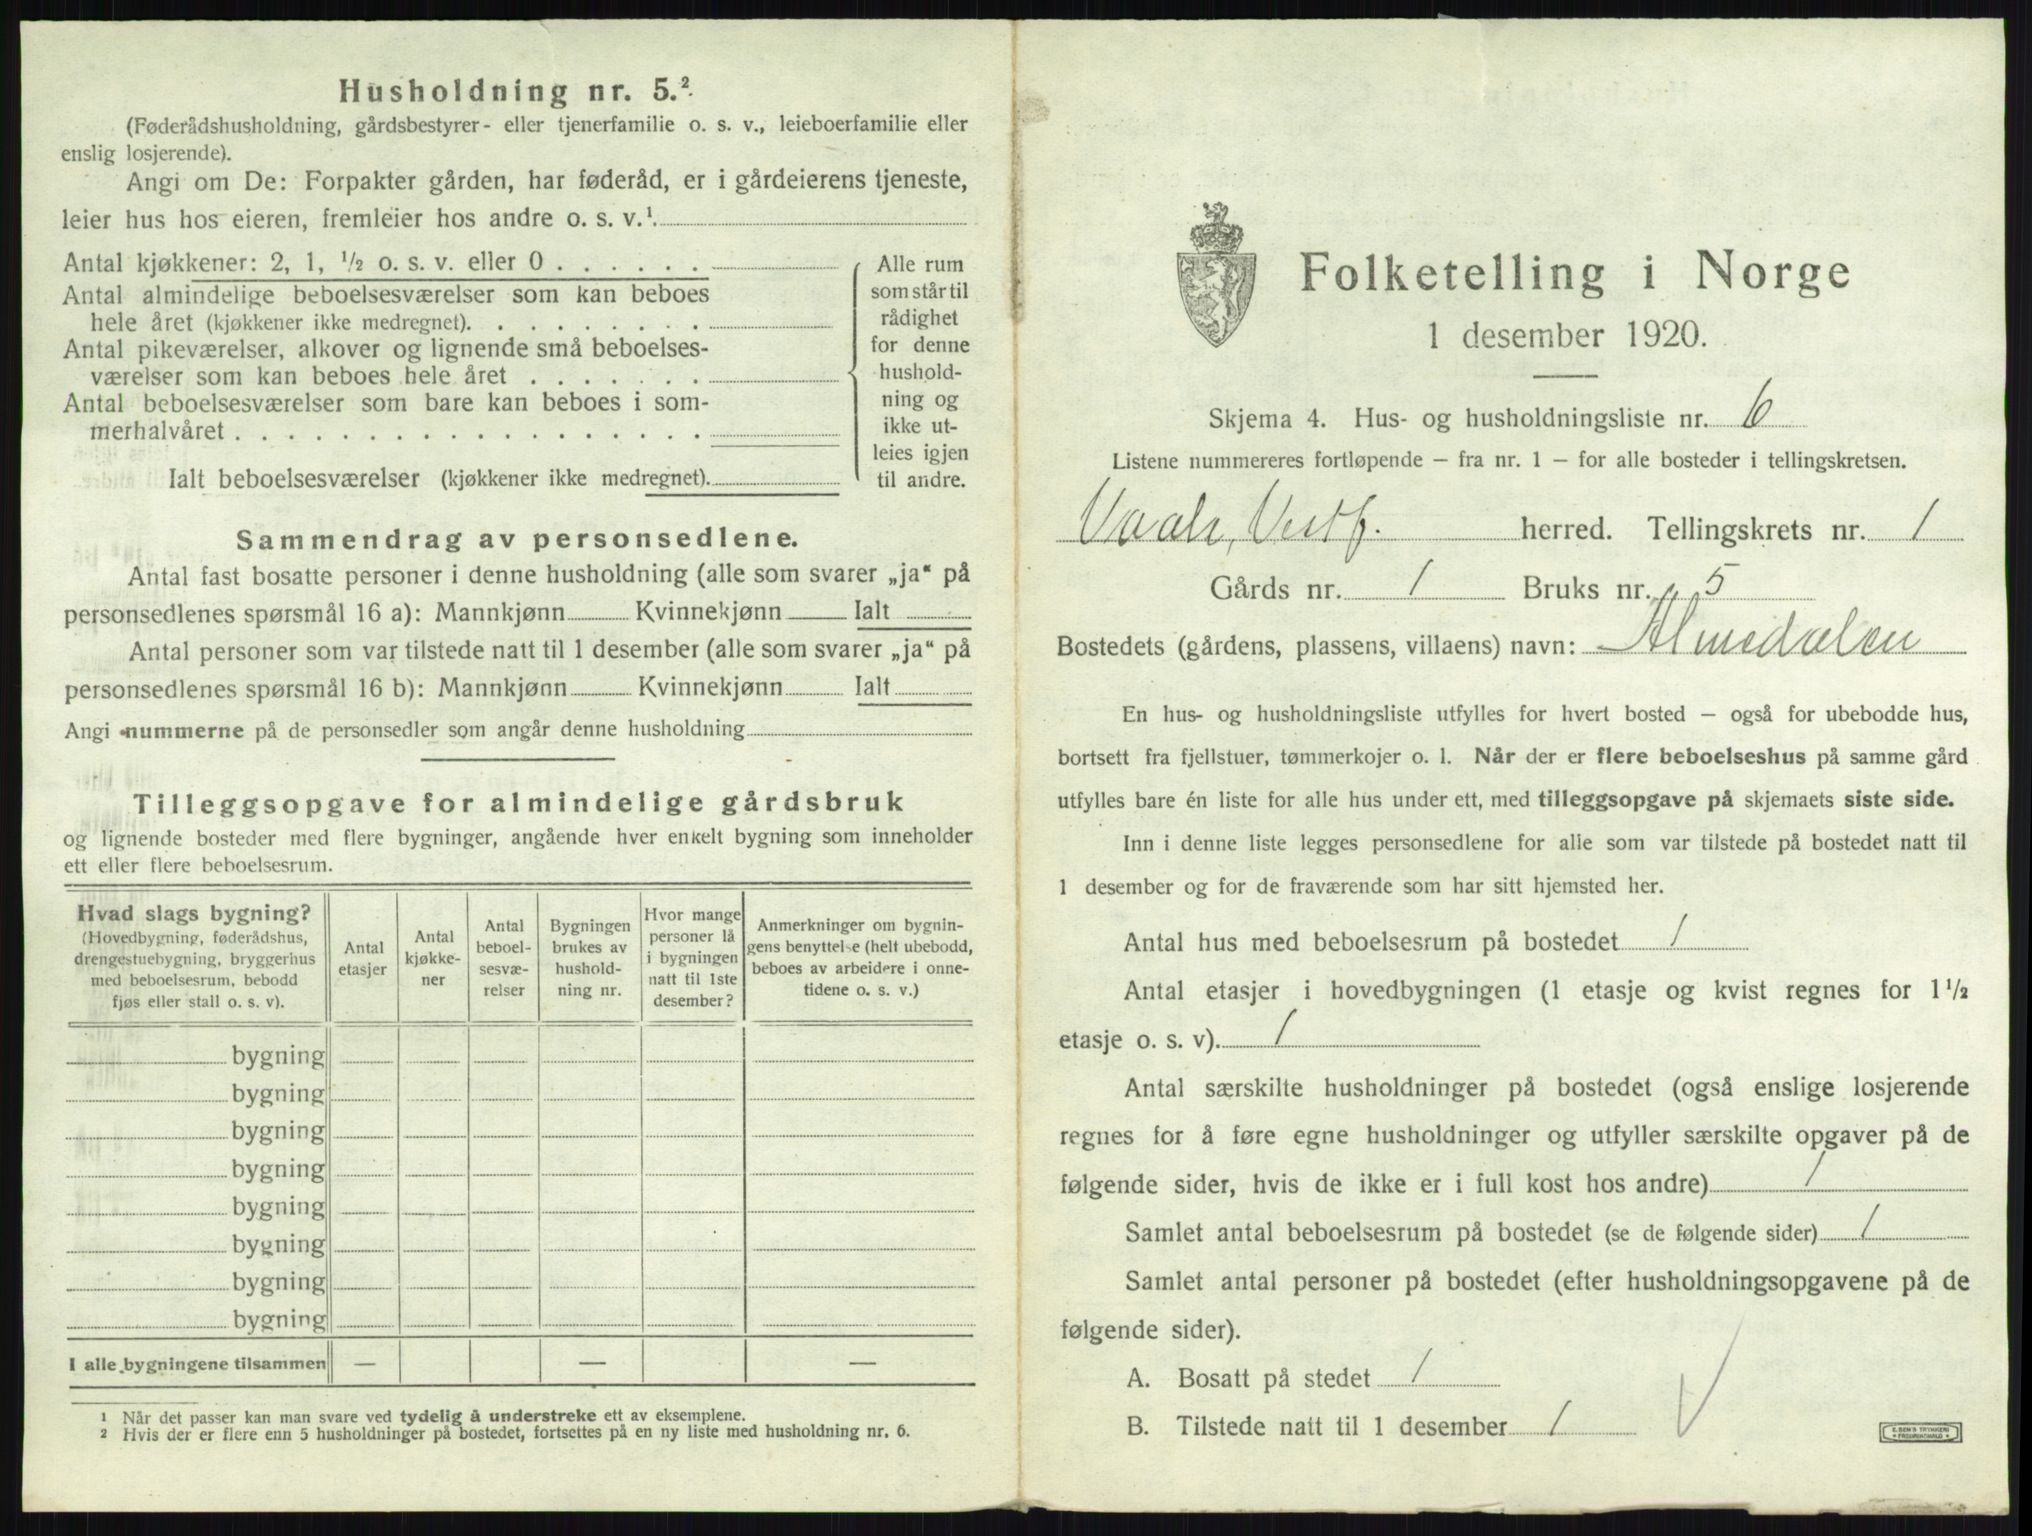 Husholdning nr. 5.²
(Føderådshusholdning, gårdsbestyrer- eller tjenerfamilie o. s. v., leieboerfamilie eller
enslig losjerende).
Angi om De: Forpakter gården, har føderåd, er i gårdeierens tjeneste,
leier hus hos eieren, fremleier hos andre o. s. v.¹
Antal kjøkkener: 2, 1, ½ o. s. v. eller 0 . . . . . .
Antal almindelige beboelsesværelser som kan beboes
hele året (kjøkkener ikke medregnet). . . . . . . . .
Antal pikeværelser, alkover og lignende små beboelses-
værelser som kan beboes hele året . . . . . . .
Antal beboelsesværelser som bare kan beboes i som-
merhalvåret . . . . . . . . . . . . . . . . . .
Ialt beboelsesværelser (kjøkkener ikke medregnet).
Alle rum
som står til
rådighet
for denne
hushold-
ning og
ikke ut-
leies igjen
til andre.
Sammendrag av personsedlene.
Antal fast bosatte personer i denne husholdning (alle som svarer „ja“ på
personsedlenes spørsmål 16 a): Mannkjønn Kvinnekjønn Ialt
Antal personer som var tilstede natt til 1 desember (alle som svarer „ja“ på
personsedlenes spørsmål 16 b): Mannkjønn Kvinnekjønn Ialt
Angi nummerne på de personsedler som angår denne husholdning
Tilleggsopgave for almindelige gårdsbruk
og lignende bosteder med flere bygninger, angående hver enkelt bygning som inneholder
ett eller flere beboelsesrum.
Hvad slags bygning?
(Hovedbygning, føderådshus,
drengestuebygning, bryggerhus
med beboelsesrum, bebodd
fjøs eller stall o. s. v).
Antal
etasjer
Antal
kjøkke-
ner
Antal
beboel-
sesvæ-
relser
Bygningen
brukes av
hushold-
ning nr.
Hvor mange
personer lå
i bygningen
natt til 1ste
desember?
Anmerkninger om bygnin-
gens benyttelse (helt ubebodd,
beboes av arbeidere i onne-
tidene o. s. v.)
bygning
bygning
bygning
bygning
bygning
bygning
bygning
bygning
I alle bygningene tilsammen — — —
¹ Når det passer kan man svare ved tydelig å understreke ett av eksemplene.
² Hvis der er flere enn 5 husholdninger på bostedet, fortsettes på en ny liste med husholdning nr. 6.
Folketelling i Norge
1 desember 1920.
Skjema 4. Hus- og husholdningsliste nr. 6
Listene nummereres fortløpende – fra nr. 1 – for alle bosteder i tellingskretsen.
Vaale, Vestf. herred. Tellingskrets nr. 1
Gårds nr. 1 Bruks nr. 5
Bostedets (gårdens, plassens, villaens) navn: Almedalen
En hus- og husholdningsliste utfylles for hvert bosted – også for ubebodde hus,
bortsett fra fjellstuer, tømmerkojer o. l. Når der er flere beboelseshus på samme gård
utfylles bare én liste for alle hus under ett, med tilleggsopgave på skjemaets siste side.
Inn i denne liste legges personsedlene for alle som var tilstede på bostedet natt til
1 desember og for de fraværende som har sitt hjemsted her.
Antal hus med beboelsesrum på bostedet 1
Antal etasjer i hovedbygningen (1 etasje og kvist regnes for 1½
etasje o. s. v). 1
Antal særskilte husholdninger på bostedet (også enslige losjerende
regnes for å føre egne husholdninger og utfyller særskilte opgaver på de
følgende sider, hvis de ikke er i full kost hos andre) 1
Samlet antal beboelsesrum på bostedet (se de følgende sider) 1
Samlet antal personer på bostedet (efter husholdningsopgavene på de
følgende sider).
A. Bosatt på stedet 1
B. Tilstede natt til 1 desember 1